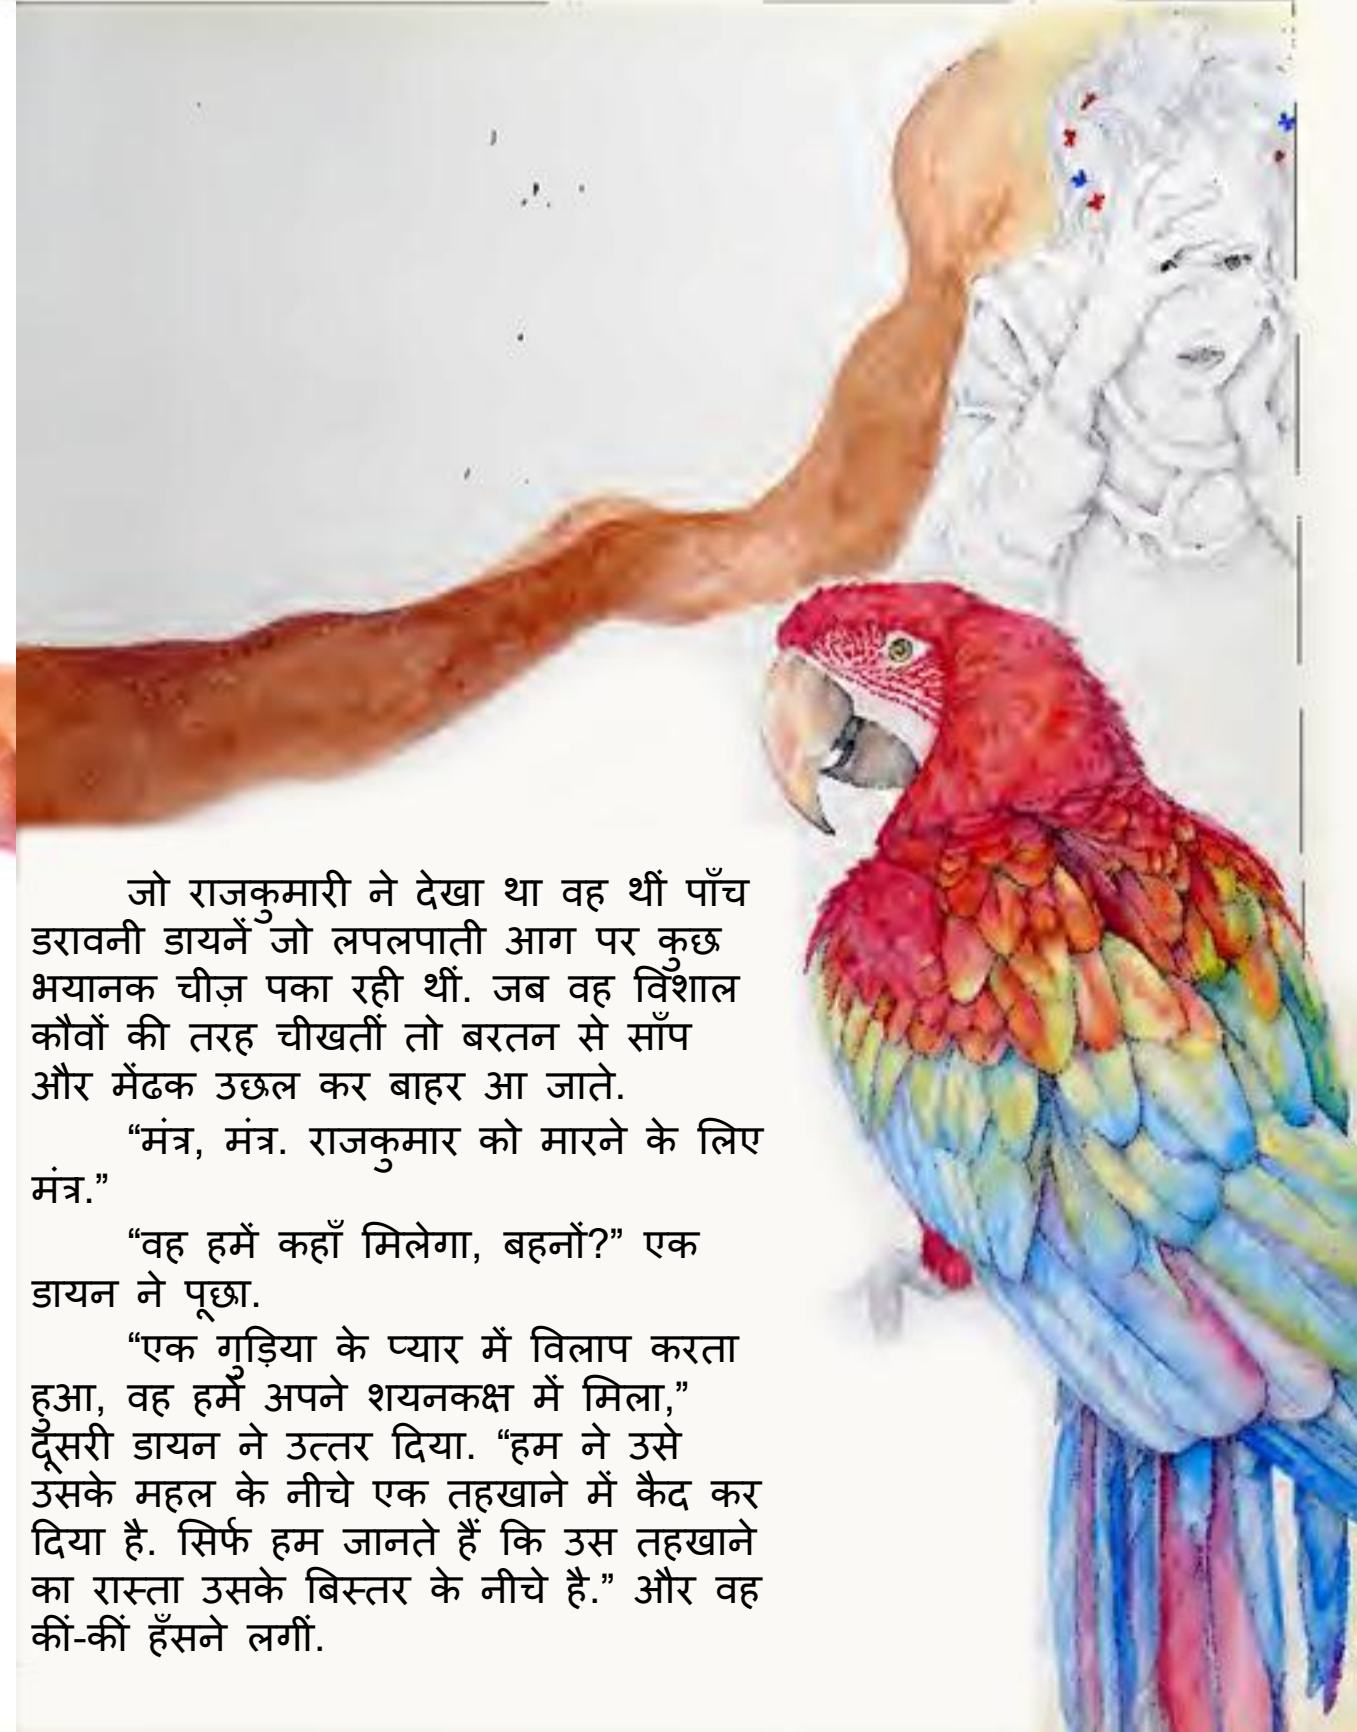 जो राजकुमारी ने देखा था वह थीं पाँच
डरावनी डायनें जो लपलपाती आग पर कुछ
भयानक चीज़ पका रही थीं. जब वह विशाल
कौवों की तरह चीखतीं तो बरतन से साँप
और मेंढक उछल कर बाहर आ जाते.
“मंत्र, मंत्र. राजकुमार को मारने के लिए
मंत्र.”
“वह हमें कहाँ मिलेगा, बहनों?” एक
डायन ने पूछा.
“एक गुड़िया के प्यार में विलाप करता
हुआ, वह हमें अपने शयनकक्ष में मिला,”
दूसरी डायन ने उत्तर दिया. “हम ने उसे
उसके महल के नीचे एक तहखाने में कैद कर
दिया है. सिर्फ हम जानते हैं कि उस तहखाने
का रास्ता उसके बिस्तर के नीचे है.” और वह
कीं-कीं हँसने लगीं.